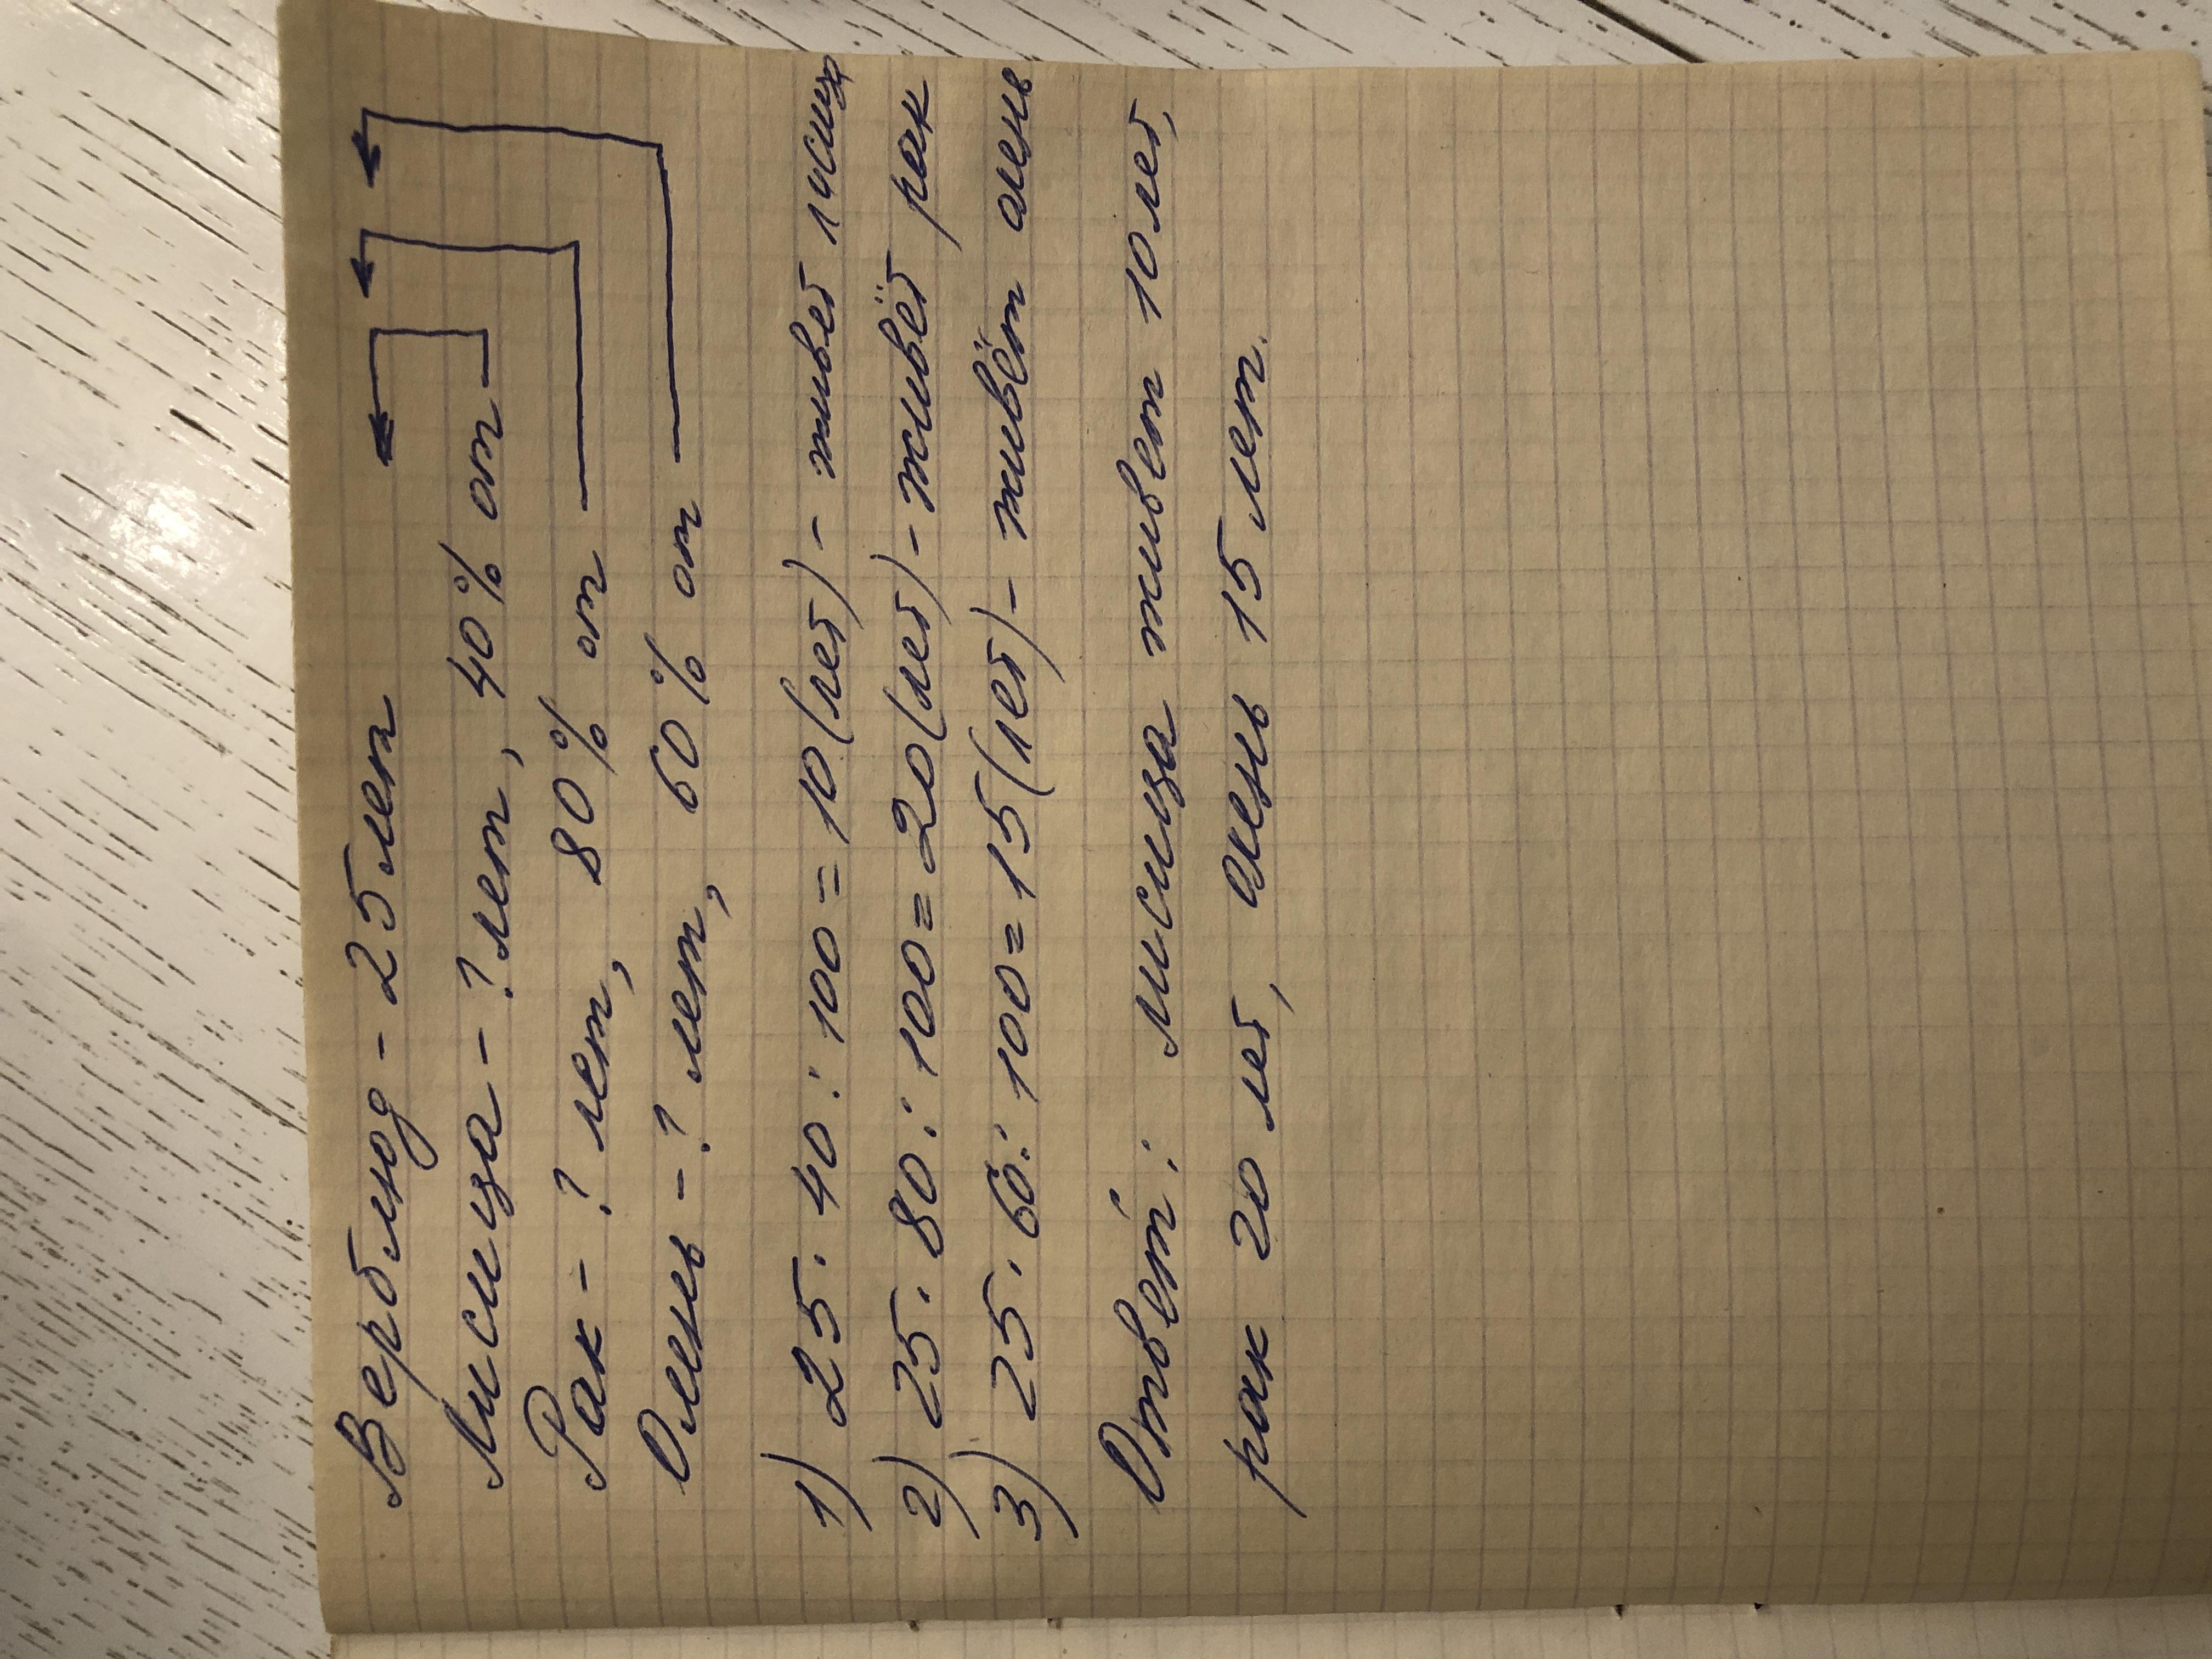 Верблюд - 25 лет
Лисица - ? лет, 40% от
Рак - ? лет, 80% от
Олень - ? лет, 60% от
1) 25 · 40 : 100 = 10 (лет) - живет лисица
2) 25 · 80 : 100 = 20 (лет) - живёт рак
3) 25 · 60 : 100 = 15 (лет) - живёт олень
Ответ: лисица живет 10 лет,
рак 20 лет, олень 15 лет.